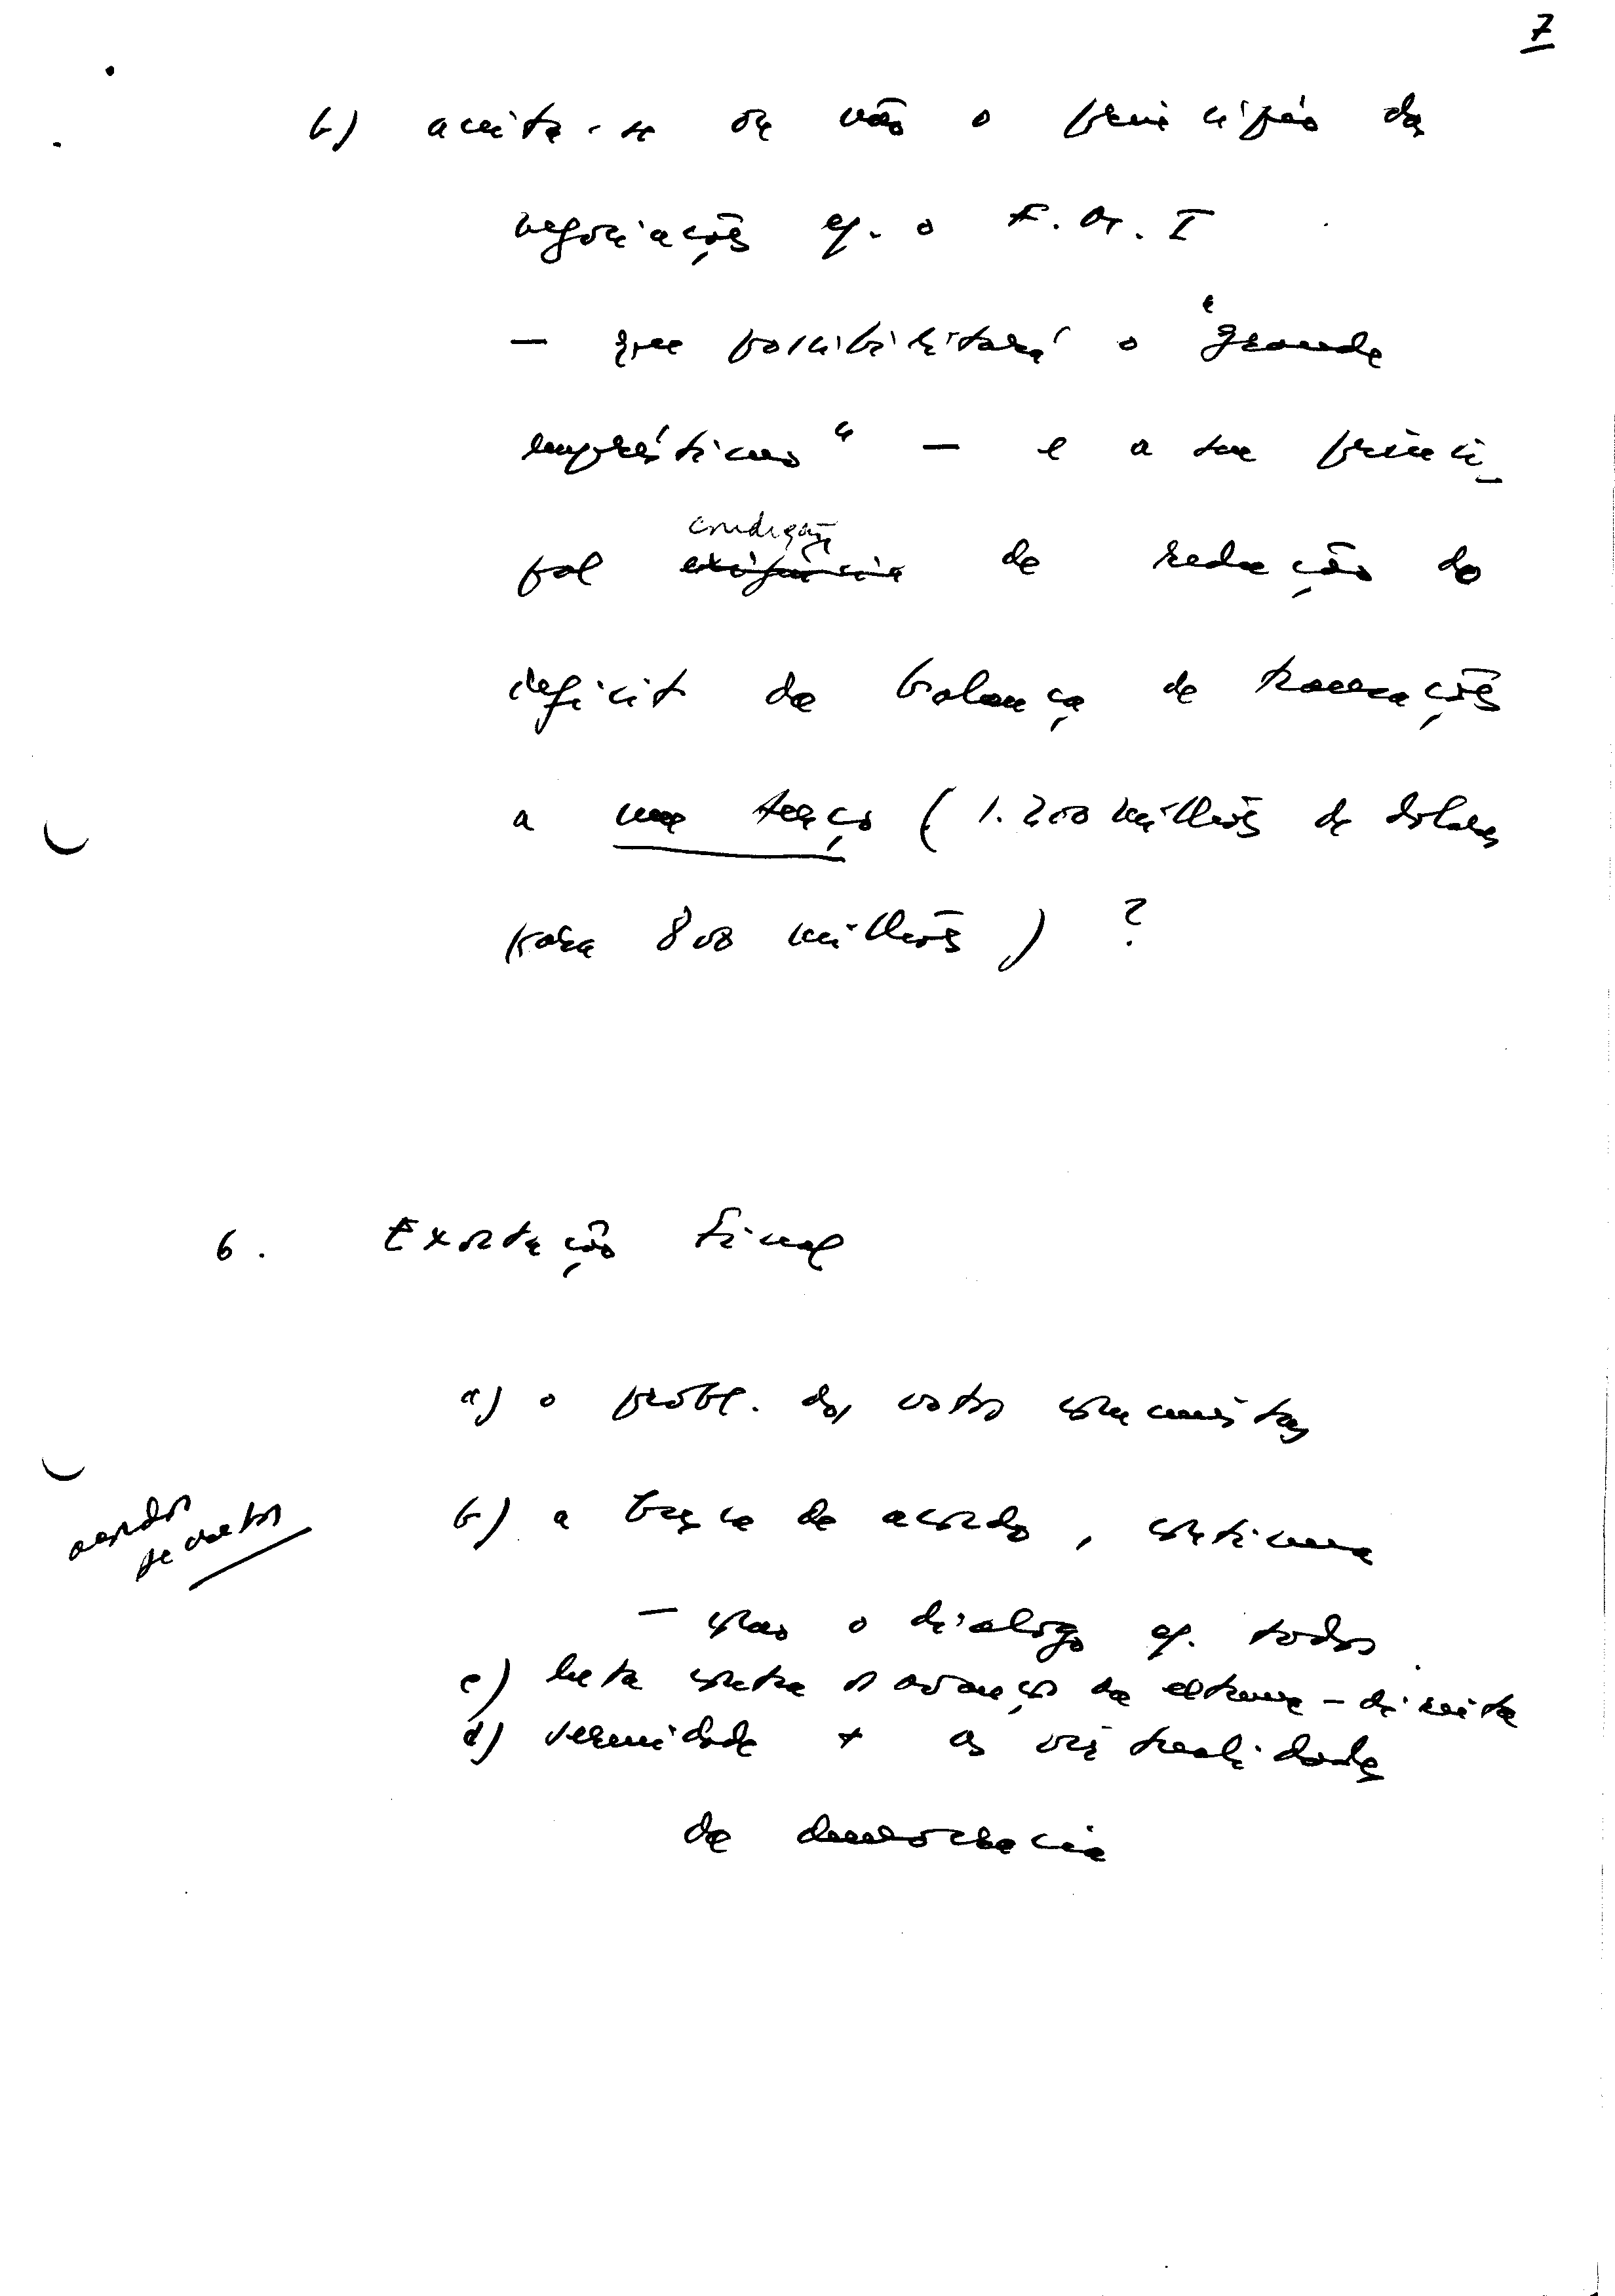 7
b) aceita-se ou não o princípio das
negociações c/. o F.M.I
— que possibilitará o "grande
empréstimo" — e a sua princi-
condição
pal exigência de redução do
deficit da balança de transações
a um terço (1.200 milhões de dolares
para 800 milhões) ?
6. Exortação final
a) o probl. dos votos comunistas
b) a busca de acordo, continua
acordos
— mas o dialogo c/. todos
c) luta contra os avanços da extrema-direita
d) serenidade + as virtualidades
da democracia